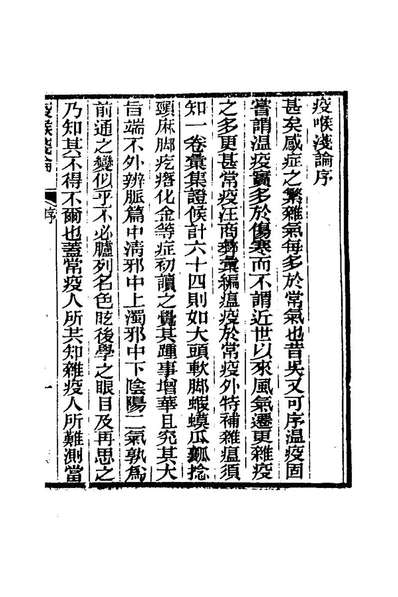 疫喉淺論序
甚矣感症之繁雜氣每多於常氣也昔吳又可序溫疫固
嘗謂溫疫實多於傷寒而不謂近世以來風氣遷更雜疫
之多更甚常疫汪商彝彙編瘟疫於常疫外特補雜瘟須
知一卷彙集證候計六十四則如大頭軟脚蝦蟆瓜瓤捻
頸麻脚疙瘩化金等症初讀之覺其踵事增華且究其大
旨端不外辨脈篇中清邪中上濁邪中下陰陽二氣孰為
前通之變似乎不必臚列名色眩後學之眼目及再思之
乃知其不得不爾也蓋常疫人所共知雜疫人所難測當
疫喉淺論 序 一